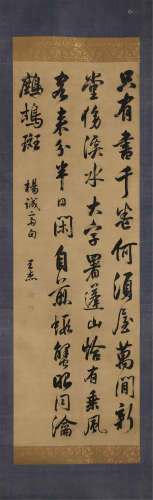 只有書千卷何須屋萬間新
堂傍溪水大字署蓬山恰有乘風
客来分半日閑自煎蝦蟹眼同瀹
鷓鴣斑
楊誠齋句
王杰